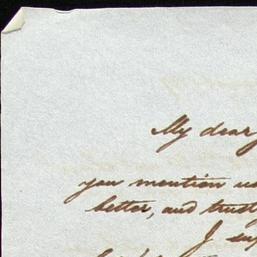 My dear
you mention
better, and trust
I